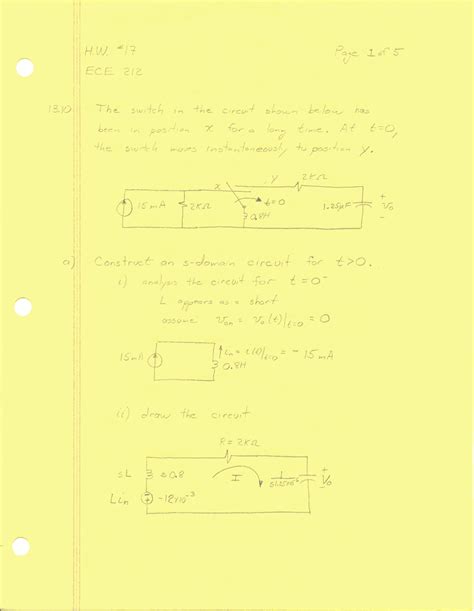 H.W. #17
Page 1 of 5
ECE 212
13.10 The switch in the circuit shown below has
been in position x for a long time. At t=0,
the switch moves instantaneously to position y.
x y 2KΩ
15mA 2KΩ t=0 0.8H 1.25μF + Vo -
a) Construct an s-domain circuit for t>0.
i) analyze the circuit for t=0⁻
L appears as a short
assume
= Vo(t)|t=0 = 0
15mA = i(0)|t=0 = - 15mA
0.8H
ii) draw the circuit
R = 2KΩ
sL 0.8 I 1 + Vo -
-12x10⁻³